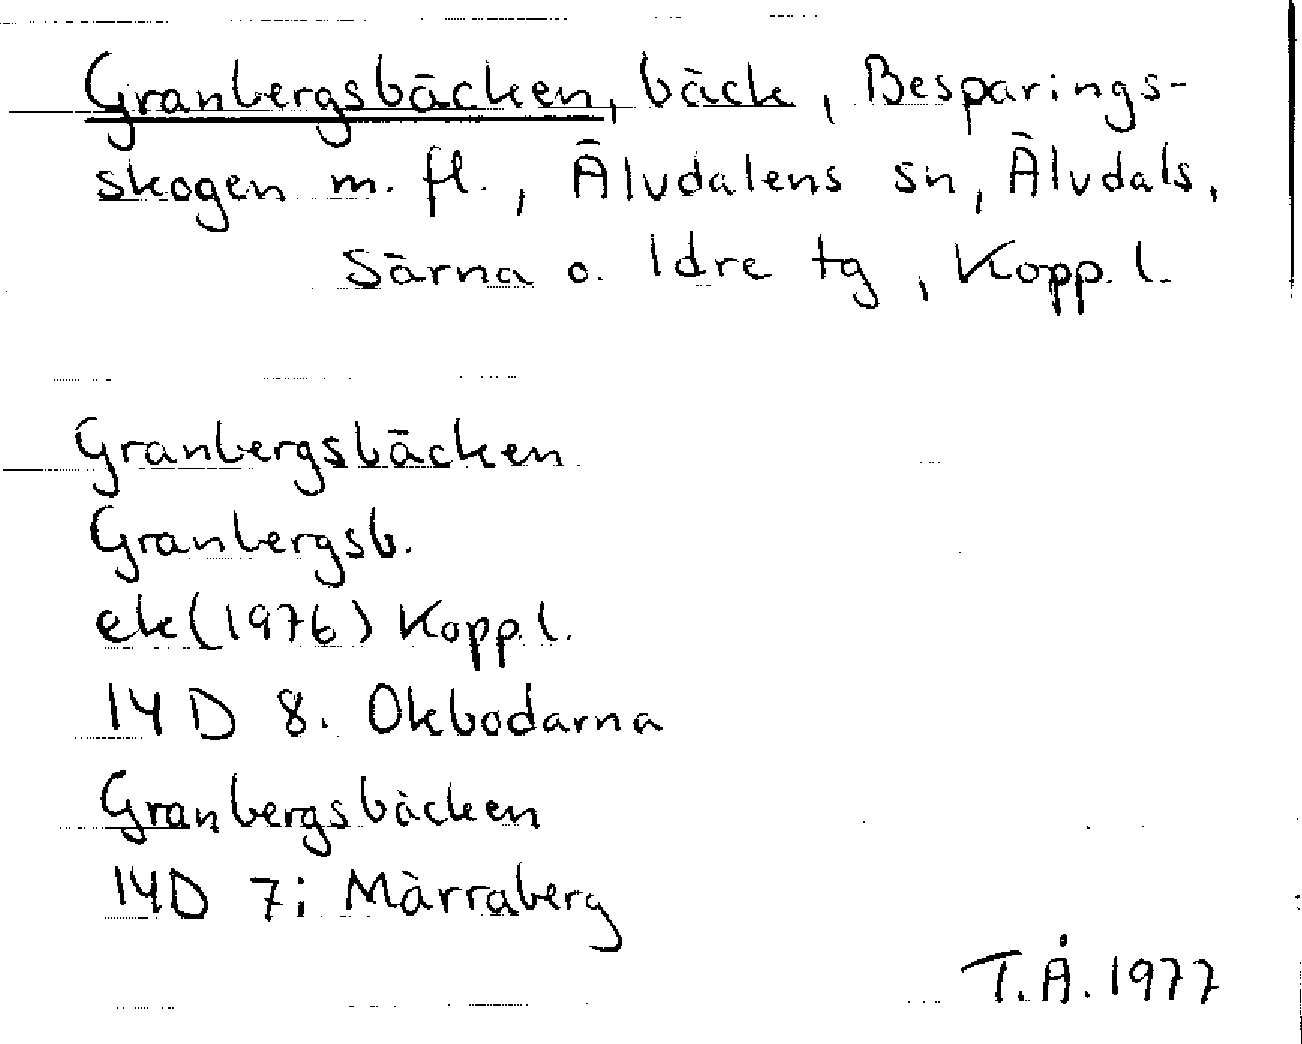 Granbergsbäcken, bäck, Besparings-
skogen m. fl., Älvdalens sn, Älvdals,
Särna o. Idre tg, Kopp. l.
Granbergsbäcken
Granbergsb.
ek(1976) Kopp. l.
14 D 8. Okbodarna
Granbergsbäcken
14D 7i Märraberg
T.Å. 1977